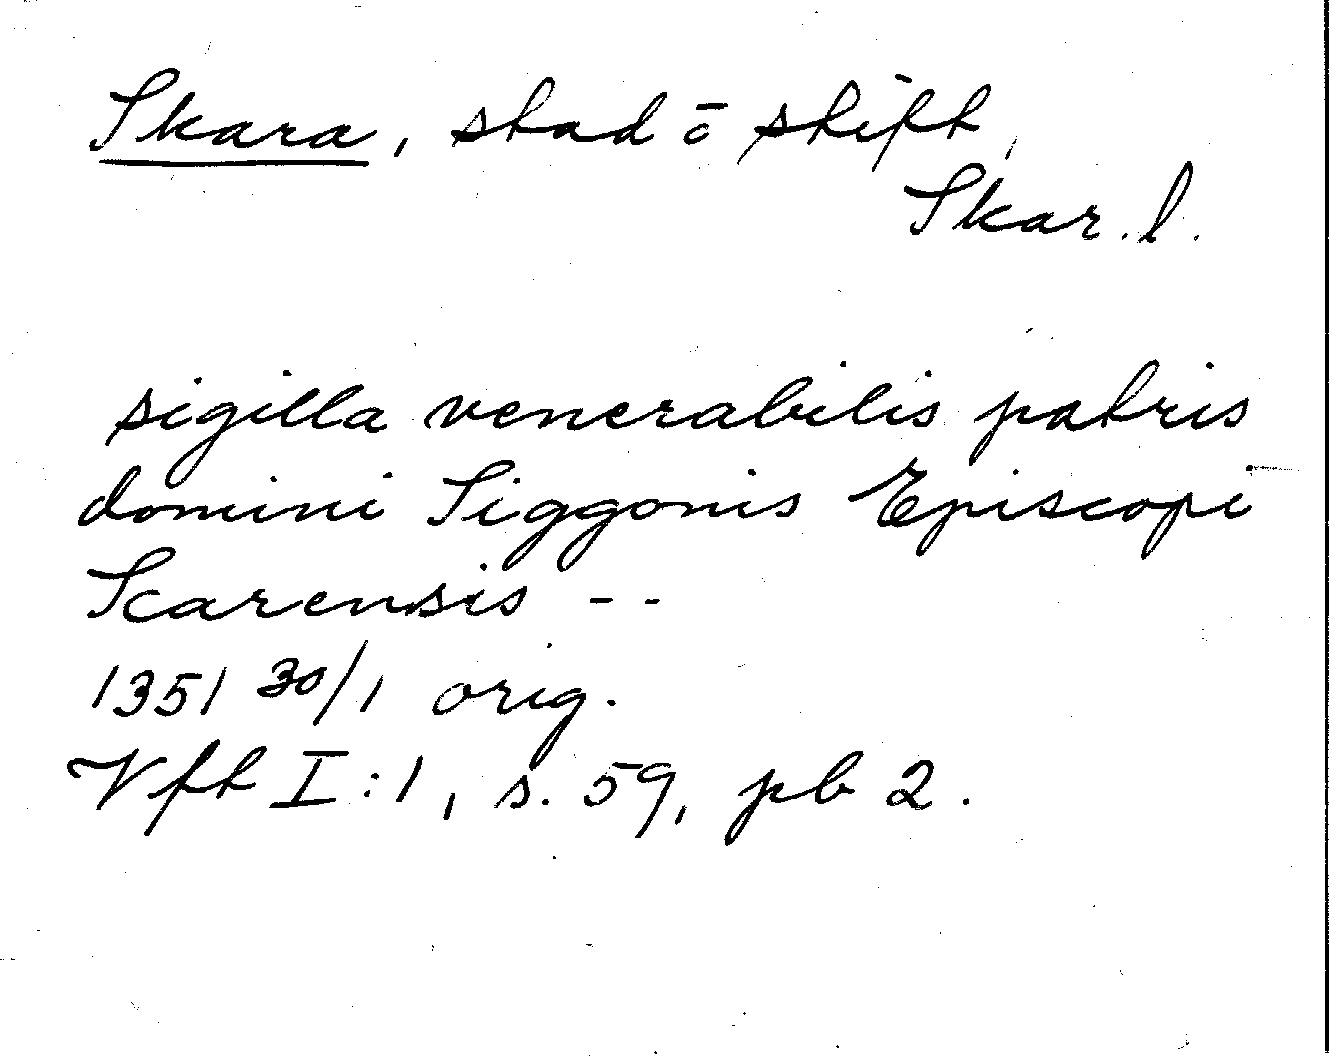 Skara, stad ō stift,
Skar. l.
sigilla venerabilis patris
domini Siggonis Episcopi
Scarensis - -
1351 30/1 orig.
Vft I:1, s. 59, pb 2.